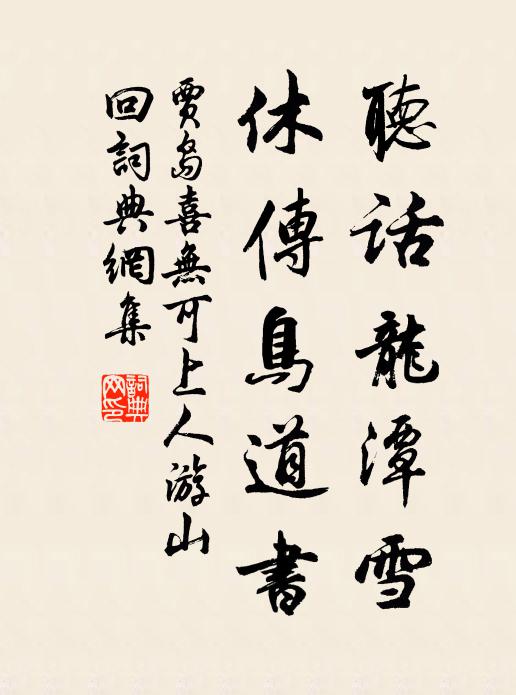 聽話龍潭雪
休傳鳥道書
賈島喜無可上人游山
回詞典網集
詞典網印